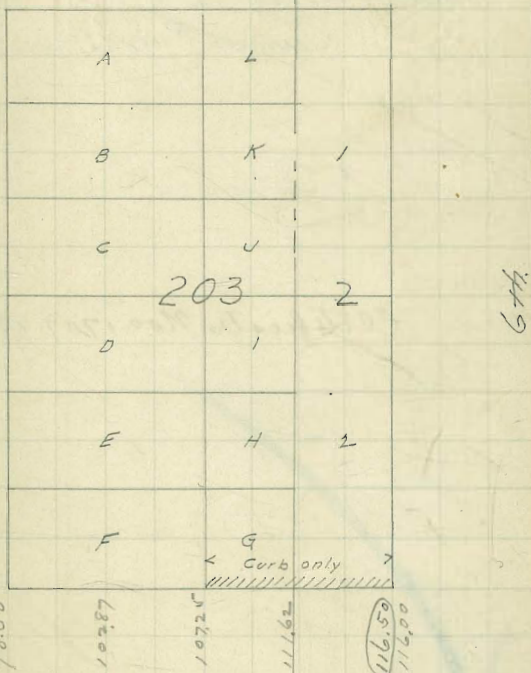 A L
B K 1
C J
203 2
D I
E H 2
F G
Curb only
102.87
107.25
111.62
116.50
116.00
6th